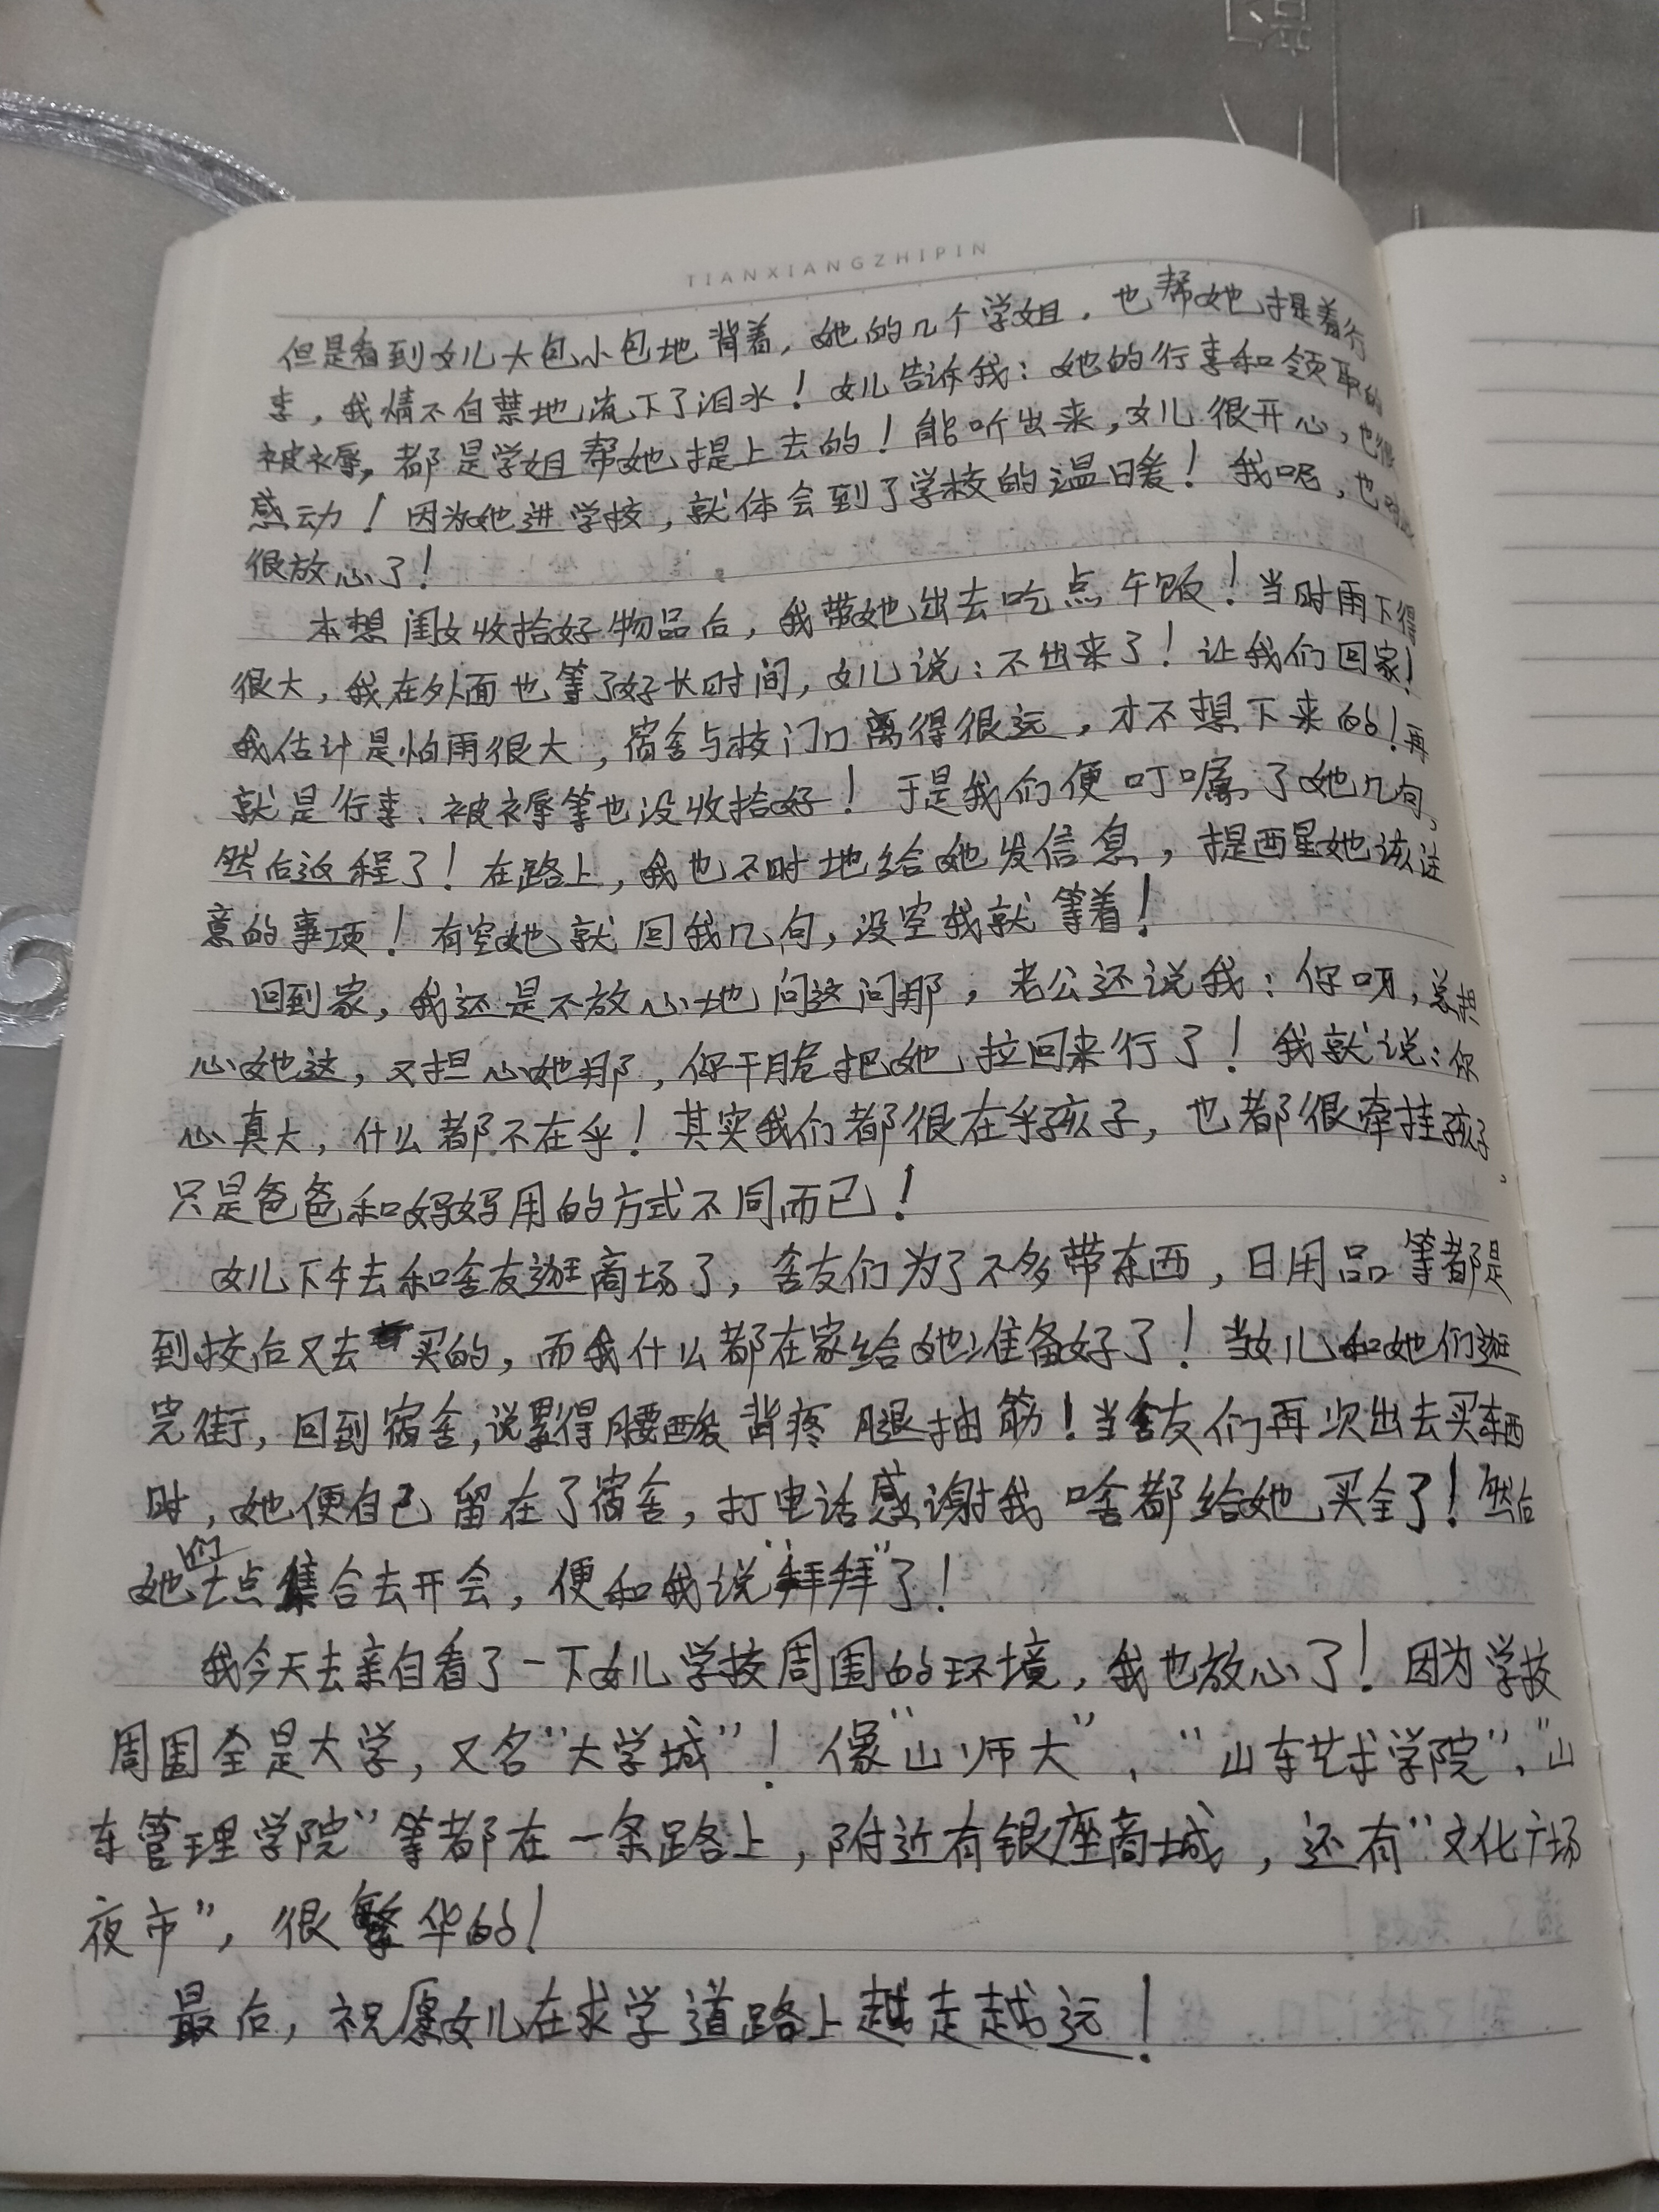 TIANXIANGZHIPIN
但是看到女儿大包小包地背着，她的几个学姐，也帮她提着行
李，我情不自禁地流下了泪水！女儿告诉我：她的行李和领取的
被褥，都是学姐帮她提上去的！能听出来，女儿很开心，也很
感动！因为她进学校，就体会到了学校的温暖！我呢，也
很放心了！
本想闺女收拾好物品后，我带她出去吃点午饭！当时雨下得
很大，我在外面也等了好长时间，女儿说：不出来了！让我们回家！
我估计是怕雨很大，宿舍与校门口离得很远，才不想下来的！再
就是行李、被褥等也没收拾好！于是我们便叮嘱了她几句，
然后返程了！在路上，我也不时地给她发信息，提醒她该注
意的事项！有空她就回我几句，没空我就等着！
回到家，我还是不放心地问这问那，老公还说我：你呀，总担
心她这，又担心她那，你干脆把她拉回来行了！我就说：你
心真大，什么都不在乎！其实我们都很在乎孩子，也都很牵挂孩子，
只是爸爸和妈妈用的方式不同而已！
女儿下午去和舍友逛商场了，舍友们为了不多带东西，日用品等都是
到校后又去买的，而我什么都在家给她准备好了！当女儿和她们逛
完街，回到宿舍，说累得腰酸背疼腿抽筋！当舍友们再次出去买东西
时，她便自己留在了宿舍，打电话感谢我啥都给她买全了！然后
她们七点集合去开会，便和我说“拜拜”了！
我今天去亲自看了一下女儿学校周围的环境，我也放心了！因为学校
周围全是大学，又名“大学城”！像“山师大”，“山东艺术学院”，“山
东管理学院”等都在一条路上，附近有银座商城，还有“文化广场
夜市”，很繁华的！
最后，祝愿女儿在求学道路上越走越远！